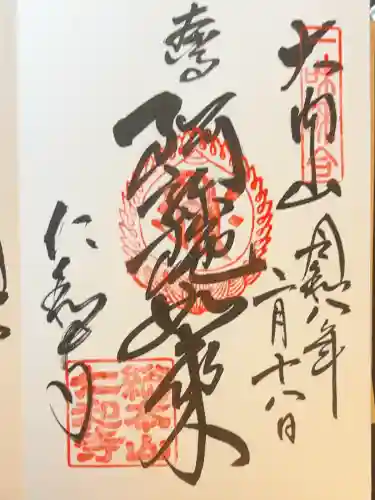 大内山
令和八年
二月十八日
奉拝
阿弥陀如来
仁和寺
総本山
仁和寺